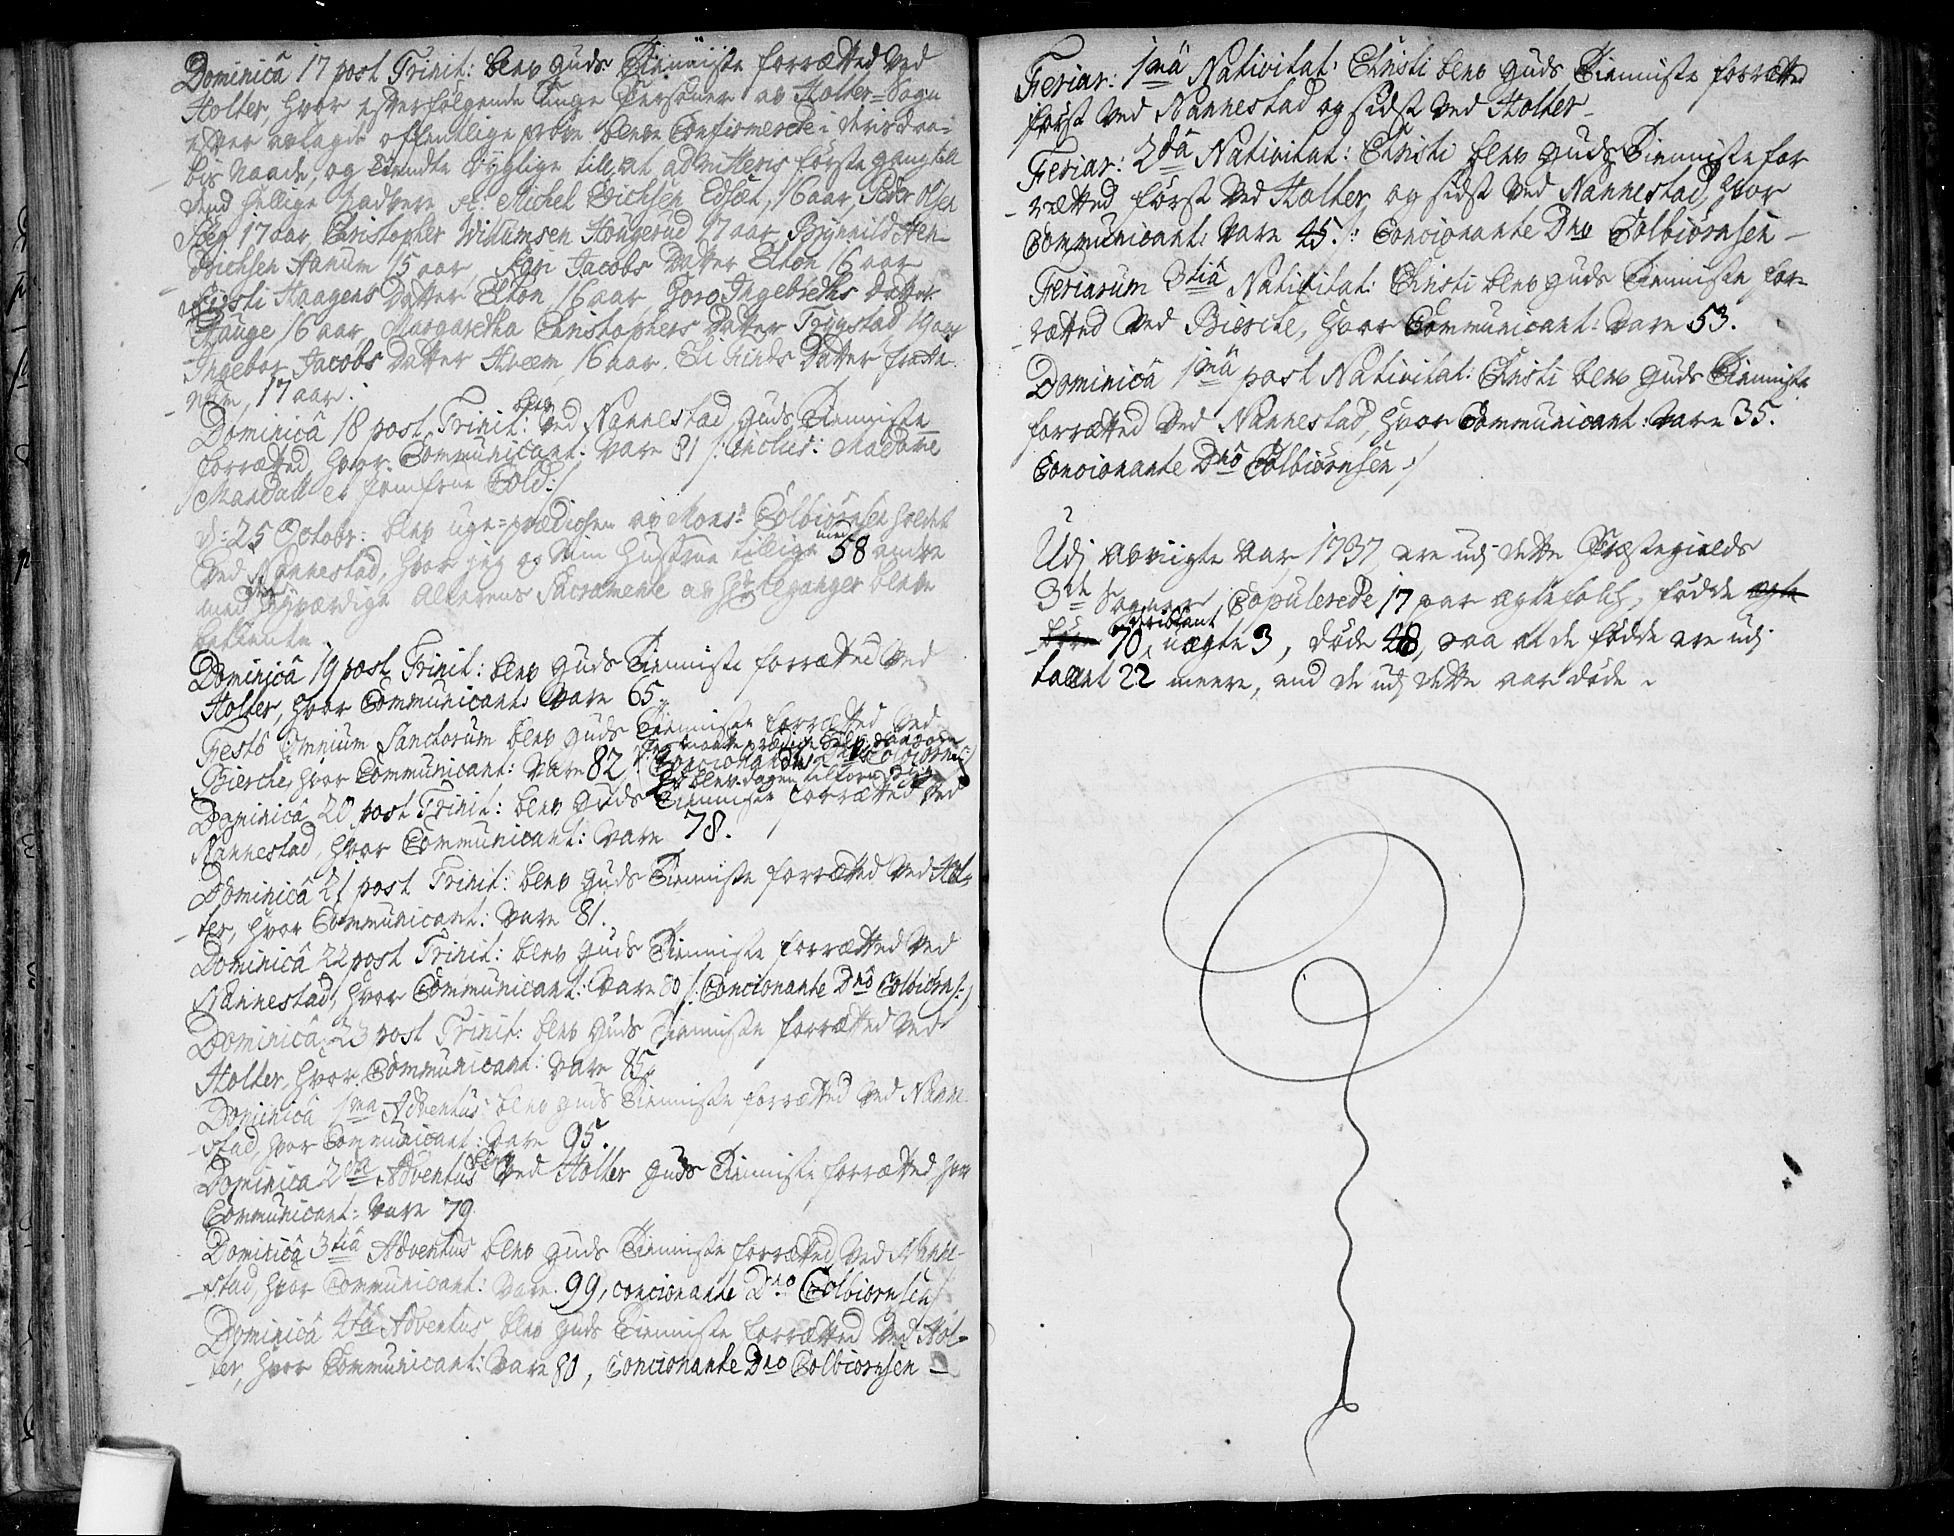 Dominicâ 17 post Trinit: blev Guds Tienniste forrætted ved
Holter, hvor efterfølgende Unge Personer av Holter-Sogn
efter avlagde offentlige prøve bleve Confirmerede i deris Daa-
bis Naade, og kiendte dygtige till at admitteris første gang till
dend hellige Nadvere, sc: Michel Erichsen Edset, 16 aar, Peder Olsen
17 aar, Christopher Willumsen Hougerud 17 aar, Brynnild Hen-
drichsen Aanum 15 aar, Kari Jacobs datter Elton 16 aar
Kirsti Haagens datter Elton 16 aar Goro Ingebreths datter
Hauge 16 aar, Margaretha Christophers datter Trygstad 19 aar
Ingebor Jacobs datter Hveem, 16 aar. Eli datter
17 aar.
Dominicâ 18 post Trinit: blev ved Nannestad Guds Tienniste
forrætted, hvor Communicant: vare 81 /: inclus: Madame
Mandall et Jomfrue Cold:/
d: 25 Octobr: blev uge-prædichen av Mons: Colbiørnsen holdet
ved Nannestad, hvor jeg og min Hustrue tillige med 58 andre
med det høyværdige Alterens Sacramente av Hr bleve
betiente
Dominicâ 19 post Trinit: blev Guds Tienniste forrætted ved
Holter, hvor Communicant: vare 65.
Festô Omnium Sanctorum blev Guds Tienniste forrætted ved
Bierche, hvor Communicant: vare 82 /: Concionante Dno Colbiørnsen
blev dagen tilforn
Dominicâ 20 post Trinit: blev Guds Tienniste forrætted ved
Nannestad, hvor Communicant: vare 78.
Dominicâ 21 post Trinit: blev Guds Tienniste forrætted ved Hol-
ter, hvor Communicant: vare 81.
Dominicâ 22 post Trinit: blev Guds Tienniste forrætted ved
Nannestad, hvor Communicant: vare 80 /: Concionante Dnô Colbiørns:/
Dominicâ 23 post Trinit: blev Guds Tienniste forrætted ved
Holter, hvor Communicant: vare 85.
Dominicâ 1ma Adventus blev Guds Tienniste forrætted ved Nanne-
stad, hvor Communicant: vare 95.
Dominica 2da Adventus blev ved Holter Guds Tienniste forrætted hvor
Communicant: vare 79.
Dominicâ 3tiâ Adventus blev Guds Tienniste forrætted ved Nanne-
stad, hvor Communicant: vare 99, concionante Dno Colbiørnsen
Dominicâ 4tâ Adventus blev Guds Tienniste forrætted ved Hol-
ter, hvor Communicant: vare 80, concionante Dno Colbiørnsen
Feriar: 1mâ Nativitat: Christi blev Guds Tienniste forrætted
først ved Nannestad og sidst ved Holter
Feriar: 2dâ Nativitat: Christi blev Guds Tienniste for
rætted først ved Holter og sidst ved Nannestad, hvor
Communicant: vare 45 /: Concionante Dno Colbiørnsen
Feriarum 3tiâ Nativitat: Christi blev Guds Tienniste for-
rætted ved Bierche, hvor Communicant: vare 53.
Dominicâ 1mâ post Nativitat: Christi blev Guds Tienniste
forrætted ved Nannestad, hvor Communicant: vare 35.
Concionante Dnô Colbiørnsen :/
Udi abviigte Aar 1737, ere udi dette Præstegields
3de Sogner Copulerede 17 par ægtefolch, fødde ægte
børn 70, uægte 3, døde 48, saa at de fødde ere udi
tallet 22 meere, end de udi dette aar døde.